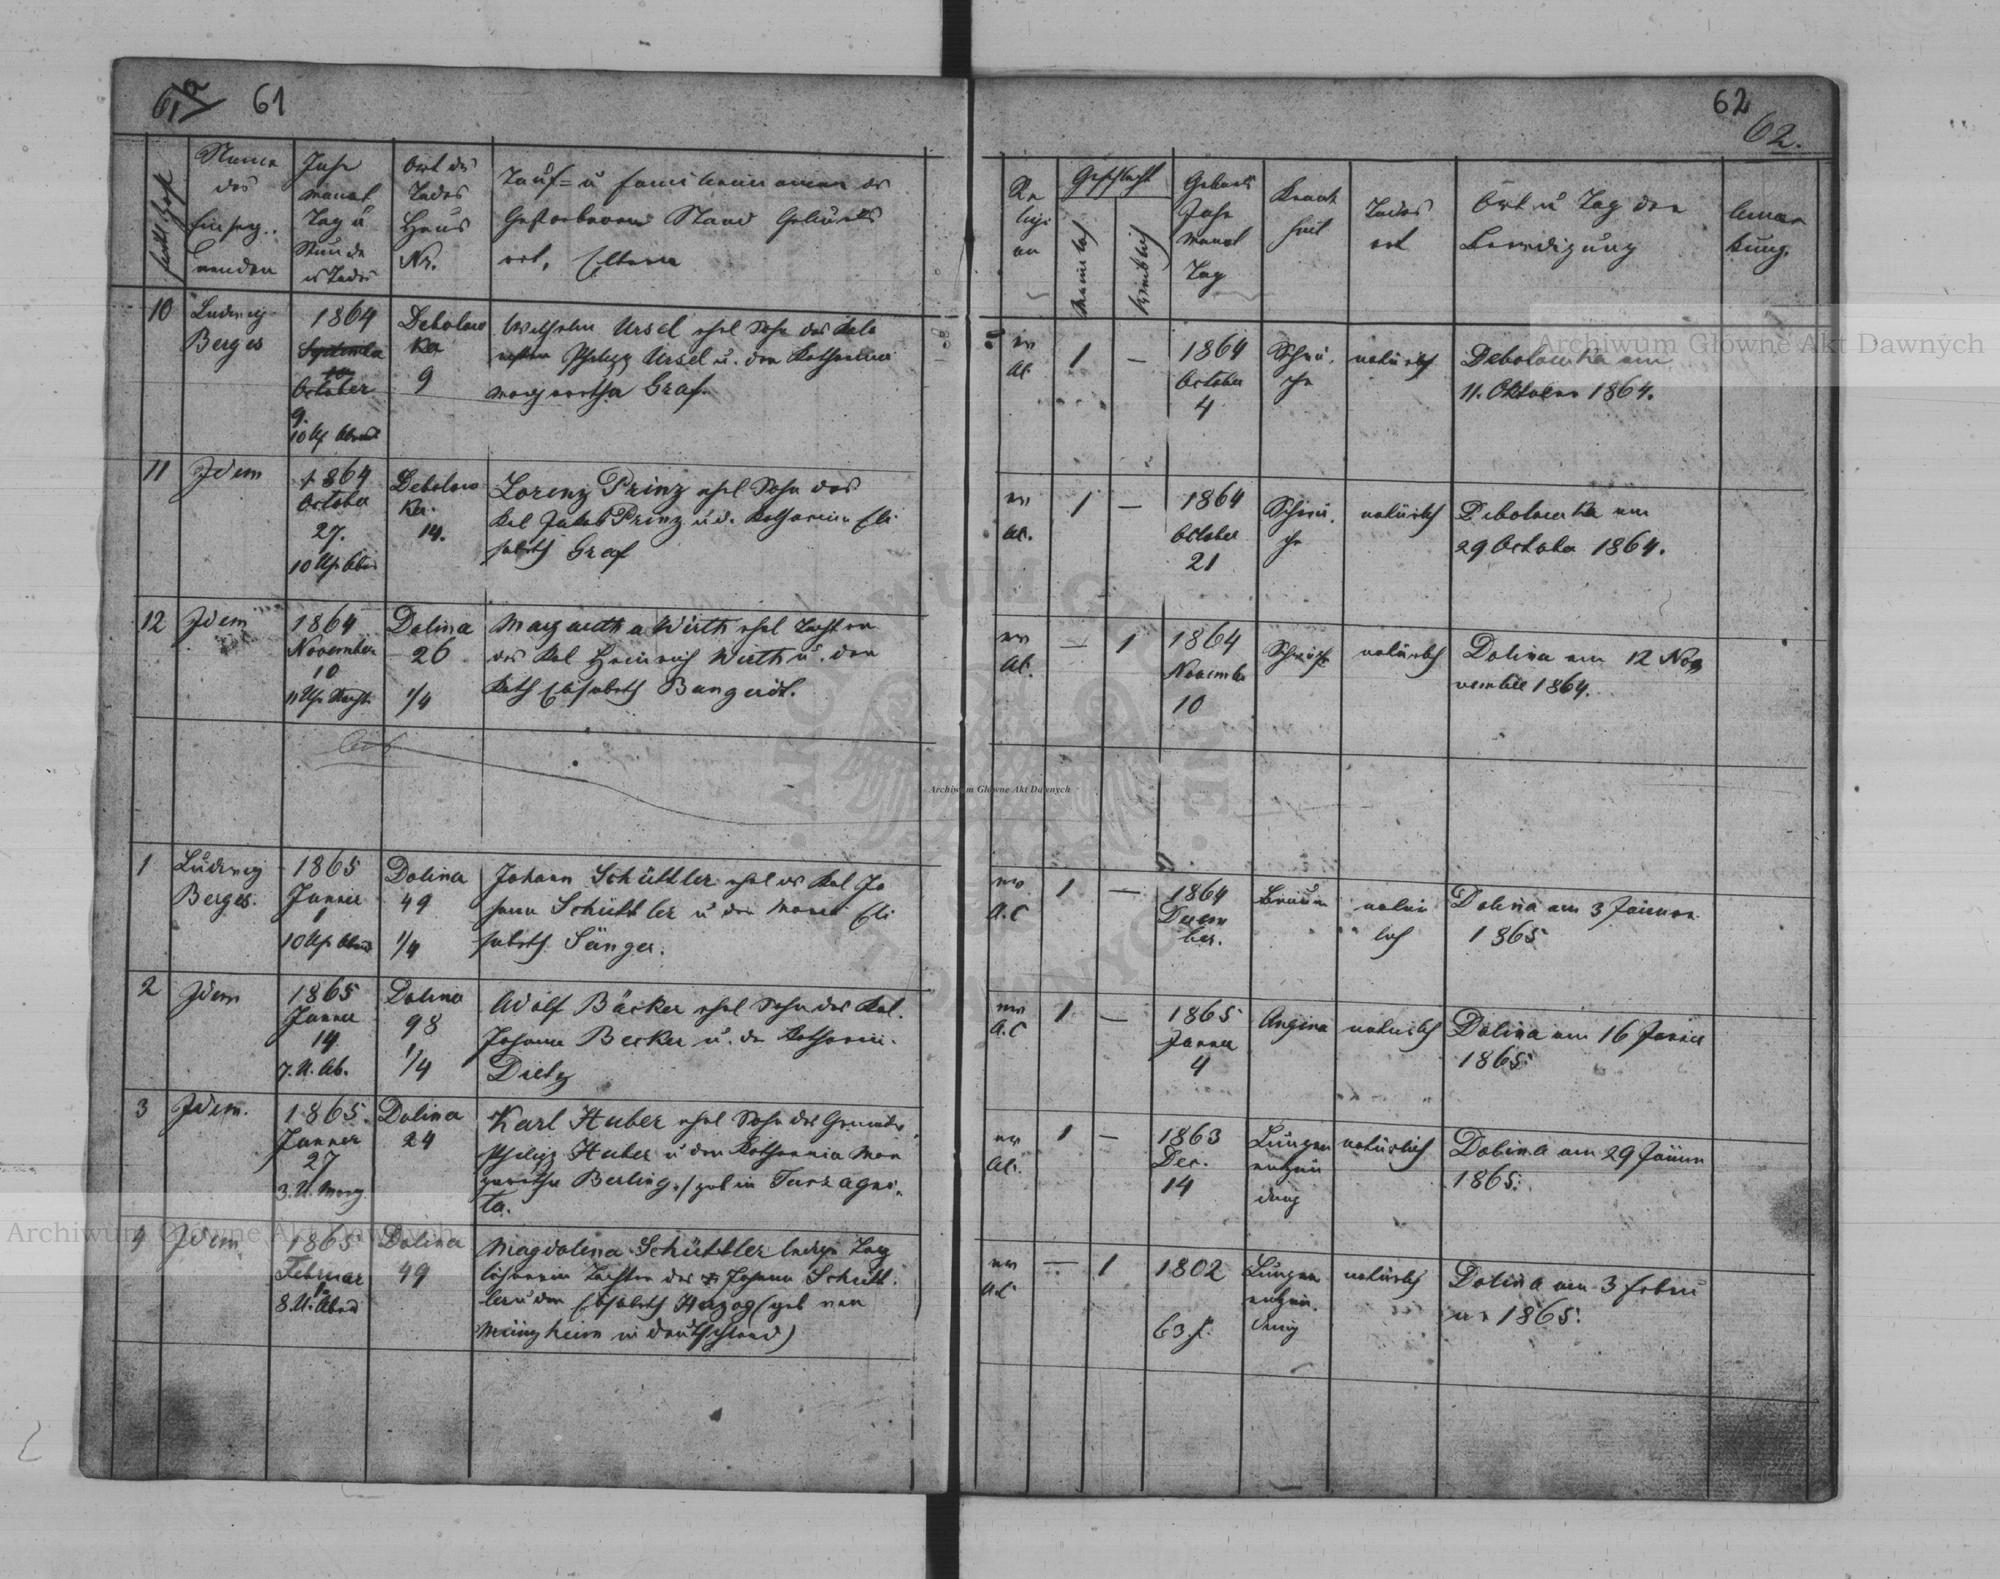 61
62
62.
Name
des
Einseg-
nenden
Jahr
Monat
Tag u
Stunde
des Todes
Ort des
Todes
Haus
Nr.
Tauf= u Familiennamen des
Gestorbenen Stand Geburts
ort, Eltern
Re
ligi
on
Geschlecht
männlich
weiblich
Geburts
Jahr
Monat
Tag
Krank
heit
Todes
art
Ort u Tag der
Beerdigung
Anmer
kung.
10
Ludwig
Berges
1864
October
9.
10 Uh Abends
Debolow
ka
9
Wilhelm Ursel ehel Sohn des Kolo
nisten Philipp Ursel u. der Katharina
Margaretha Graf.
ev
AC
1
—
1864
October
4
Schwä.
che
natürlich
Debolowka am
11. Oktober 1864.
11
Idem
1864
October
27.
10 Uhr Abds
Debolow
ka.
14.
Lorenz Prinz ehel Sohn des
Kol Jakob Prinz u. d. Katharina Eli
sabeth Graf
ev
AC.
1
—
1864
October
21
Schwä.
che
natürlich
Debolowka am
29 October 1864.
12
Idem
1864
November
10
11 Uhr Nachts
Dolina
26
1/4
Margaretha Wirth ehel Tochter
des Kol Heinrich Wirth u. der
Kath Elisabeth Bangerdt.
ev
AC.
—
1
1864
November
10
Schwäche
natürlich
Dolina am 12 No
vember 1864.
1
Ludwig
Berges.
1865
Jänner
1
10 Uhr Abends
Dolina
49
1/4
Johann Schüttler ehel des Kol Jo
hann Schüttler u der Maria Eli
sabeth Sänger.
ev
A.C
1
—
1864
Decem
ber.
natür
lich
Dolina am 3 Jänner
1865
2
Idem
1865
Jänner
14.
7. U. Ab.
Dolina
98
1/4
Adolf Bäcker ehel Sohn des Kol.
Johann Becker u. der Katharin.
Dietz
ev
A.C
1
—
1865
Jänner
4
Angina
natürlich
Dolina am 16 Jänner
1865
3
Idem.
1865
Jänner
27
3. U. Morg
Dolina
24
Karl Huber ehel Sohn des Grundw.
Philipp Huber u der Katharina Mar
garetha Berling. / geb in Turzagni.
ta.
ev
AC.
1
—
1863
Dec.
14
Lungen
entzün
dung
natürlich
Dolina am 29 Jänner
1865.
4
Idem
1865
Februar
1
8. U. Abend
Dolina
49
Magdolena Schüttler ledige Tag
löhnerin Tochter des Johann Schütt.
ler u der Elisabeth Herzog (geb von
in Deutschland)
ev
AC
—
1
1802
63 J.
Lungen
entzün.
dung
natürlich
Dolina am 3 Febru
ar 1865.
Archiwum Główne Akt Dawnych
Archiwum Główne Akt Dawnych
Archiwum Główne Akt Dawnych